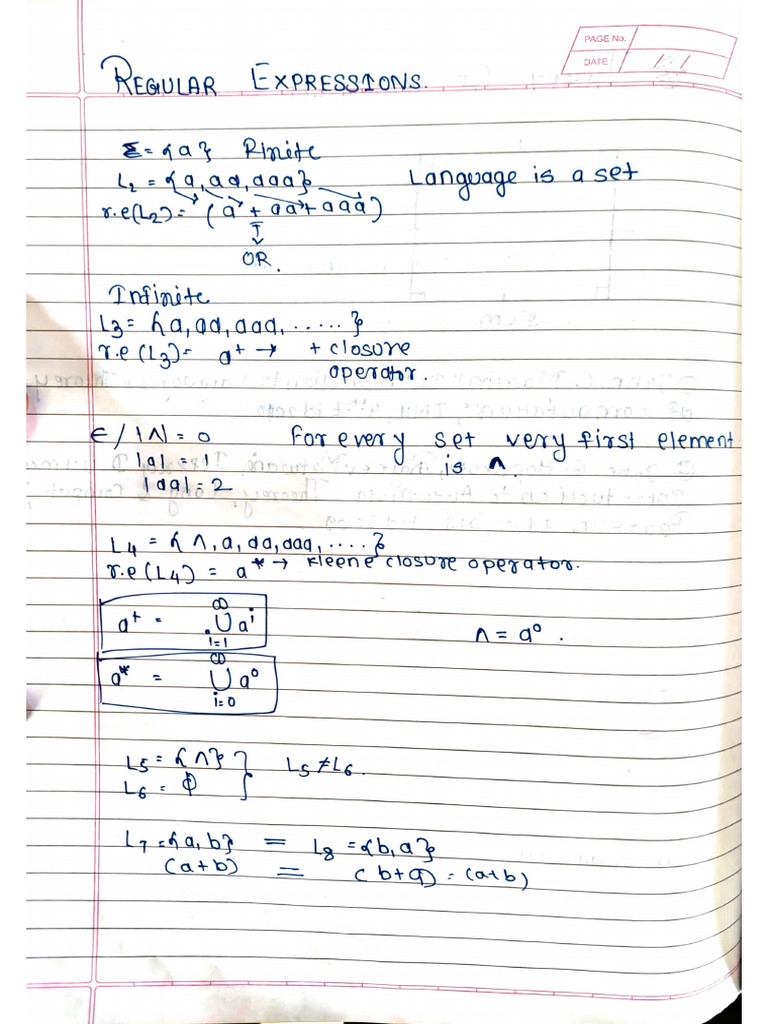 PAGE No.
DATE / /
REGULAR EXPRESSIONS.
Σ = {a} Finite
L₂ = {a, aa, aaa} Language is a set
r.e(L₂) = (a + aa + aaa)
OR.
Infinite
L₃ = {a, aa, aaa, .....}
r.e (L₃) = a⁺ → + closure
operator.
ϵ / |Λ| = 0 For every set very first element
|a| = 1 is Λ.
|aa| = 2
L₄ = {Λ, a, aa, aaa, ....}
r.e(L₄) = a* → Kleene closure operator.
a⁺ = ∞ ∪ i=1 aⁱ Λ = a⁰.
a* = ∞ ∪ i=0 a⁰
L₅ = {Λ} } L₅ ≠ L₆.
L₆ = ϕ
L₇ = {a, b} = L₈ = {b, a}
(a+b) = (b+a) = (a+b)